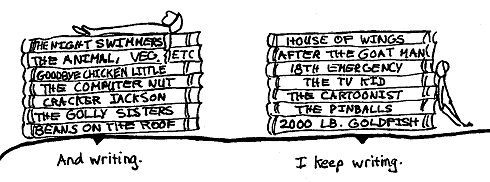 THE NIGHT SWIMMERS
THE ANIMAL, VEG. ETC
GOODBYE CHICKEN LITTLE
THE COMPUTER NUT
CRACKER JACKSON
THE GOLLY SISTERS
BEANS ON THE ROOF
And writing.
HOUSE OF WINGS
AFTER THE GOAT MAN
18TH EMERGENCY
THE TV KID
THE CARTOONIST
THE PINBALLS
2000 LB. GOLDFISH
I keep writing.